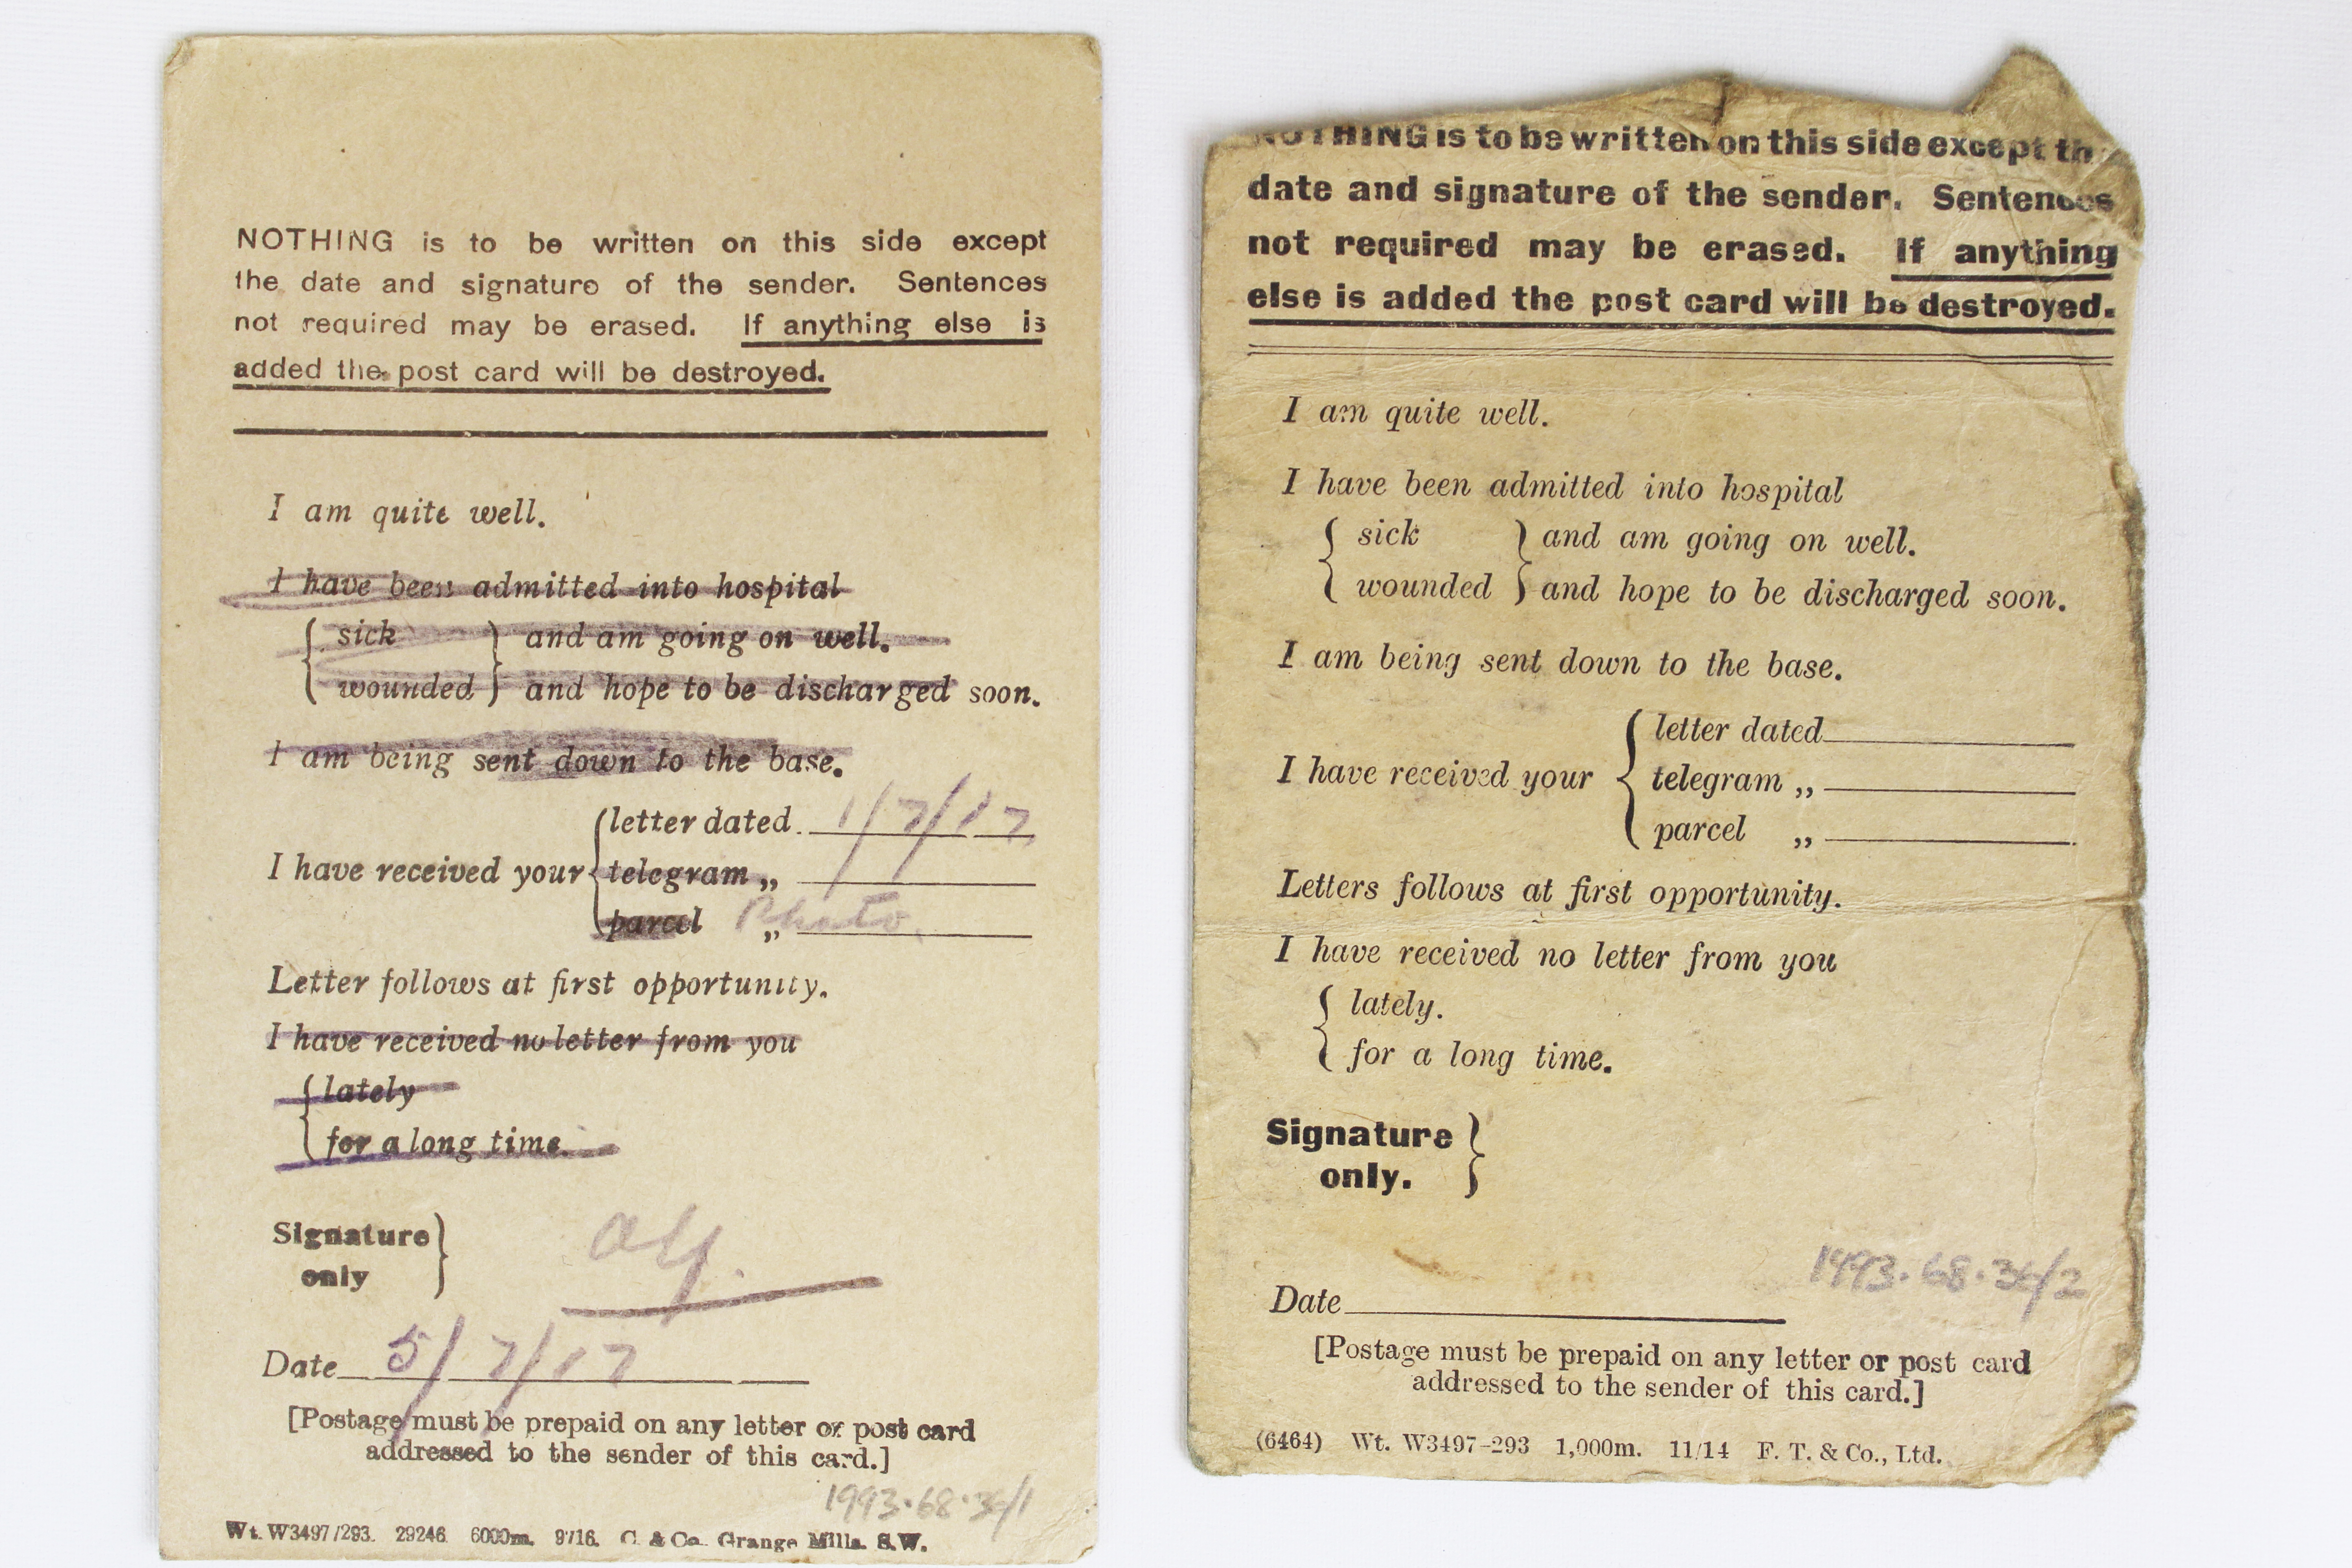 NOTHING is to be written on this side except
the date and signature of the sender. Sentences
not required may be erased. If anything else is
added the post card will be destroyed.
I am quite well.
I have been admitted into hospital
{ sick } and am going on well.
{ wounded } and hope to be discharged soon.
I am being sent down to the base.
letter dated 1/7/17
I have received your { telegram „
parcel „ Photo
Letter follows at first opportunity.
I have received no letter from you
{ lately
for a long time.
Signature }
only
Alf.
Date 5/7/17
[Postage must be prepaid on any letter or post card
addressed to the sender of this card.]
1993.68.34/1
Wt. W3497/293. 29246. 6000m. 9/16. C. & Co. Grange Mills. S.W.
NOTHING is to be written on this side except
date and signature of the sender. Sentences
not required may be erased. If anything
else is added the post card will be destroyed.
I am quite well.
I have been admitted into hospital
{ sick } and am going on well.
{ wounded } and hope to be discharged soon.
I am being sent down to the base.
letter dated
I have received your { telegram „
parcel „
Letters follows at first opportunity.
I have received no letter from you
{ lately.
for a long time.
Signature }
only.
1993.68.34/2
Date
[Postage must be prepaid on any letter or post card
addressed to the sender of this card.]
(6464) Wt. W3497-293 1,000m. 11/14 F. T. & Co., Ltd.